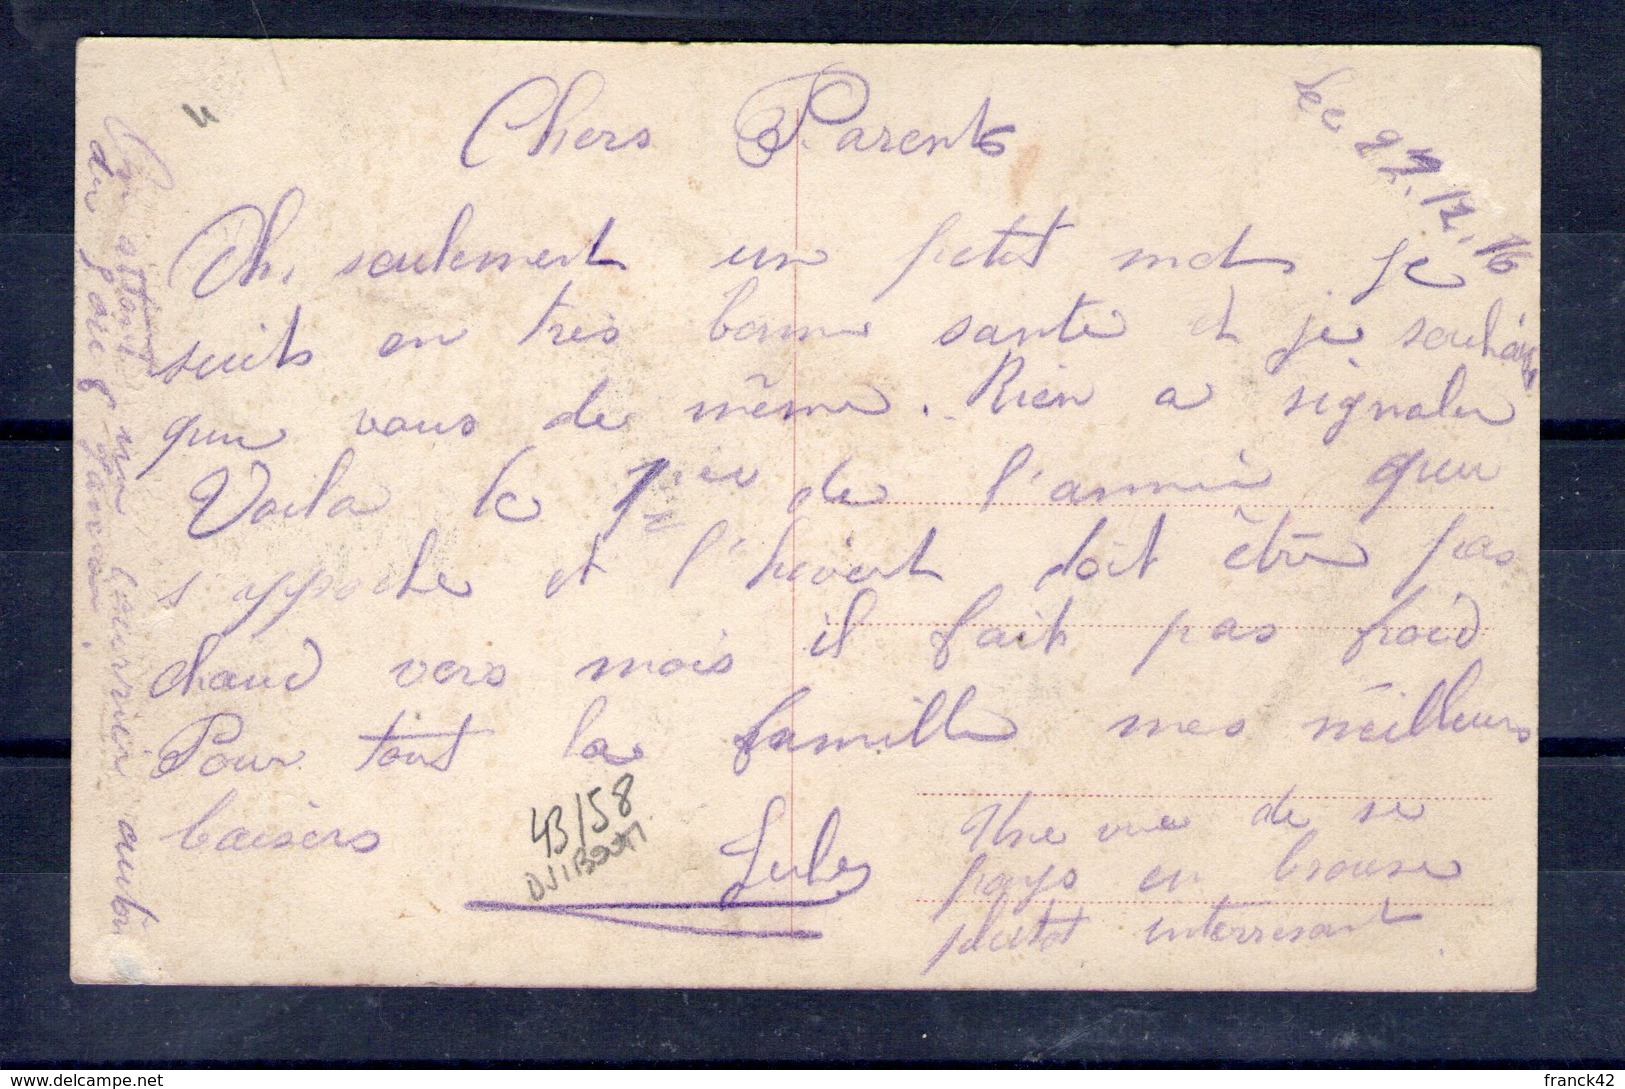 Chers Parents
27.12.16
Oh, seulement un petit mot Je
suits en très bonne santé et je souhaite
que vous de même. Rien a signaler
Voila le 1ier de l'année que
s'approche et l'hivert doit être pas
chaud vers mois il fait pas froid
Pour tout la famille mes meilleurs
baisers
Jules
Une vue de se
pays en brouse
plutot interresant
43/58
DJIBOUTI
un courrier
du
franck42